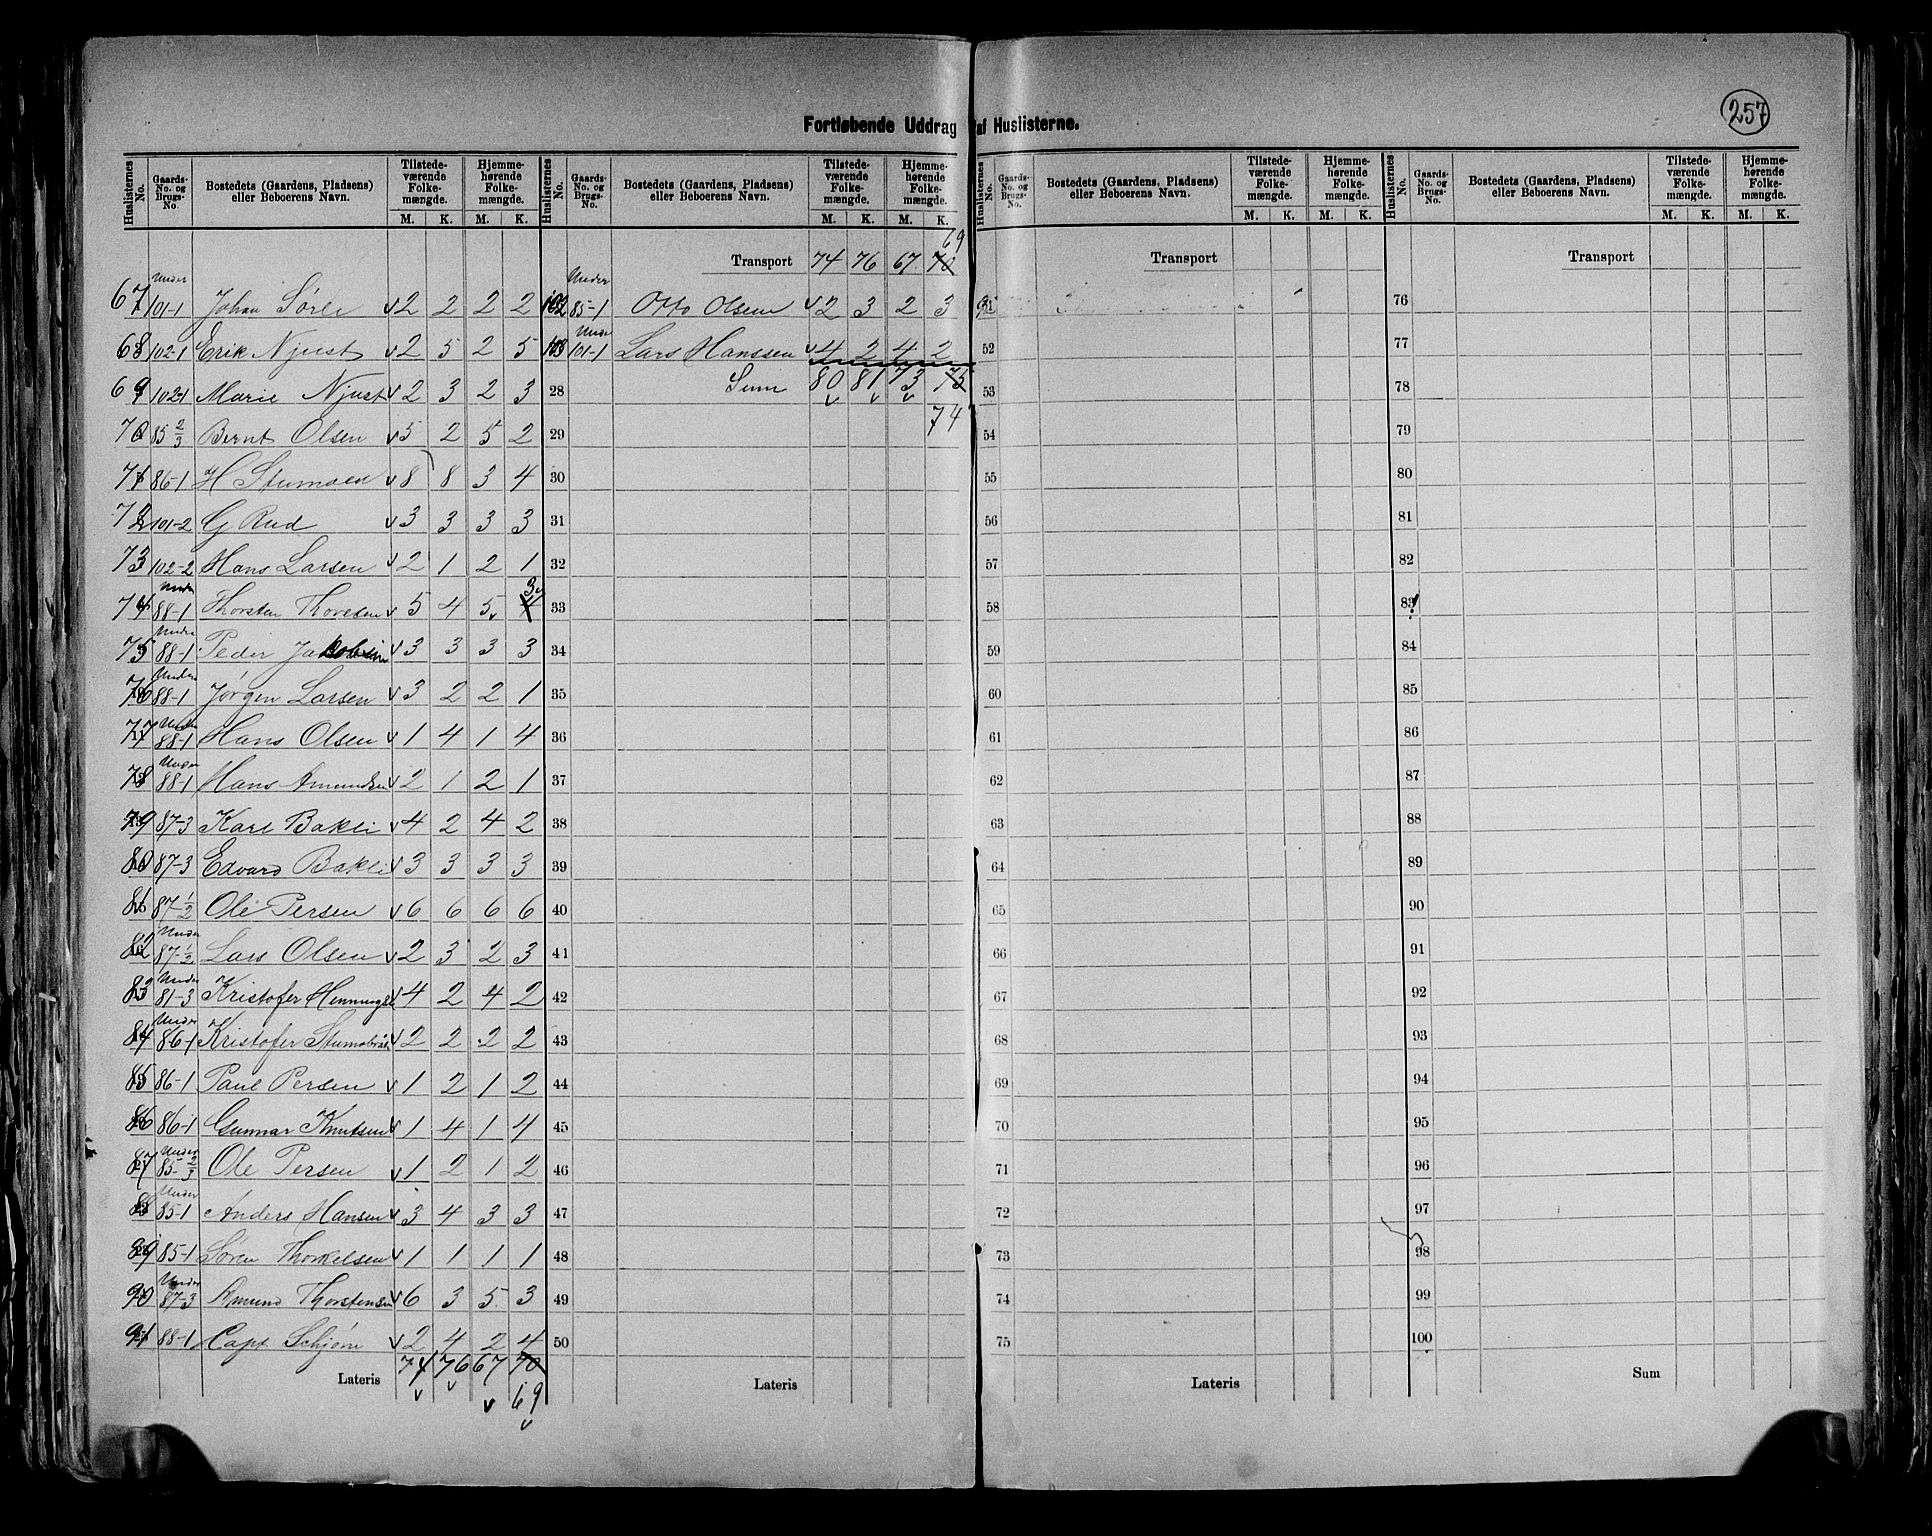 257
Fortløbende Uddrag af Huslisterne.
Huslisternes No. Gaards-No. og Brugs-No. Bostedets (Gaardens, Pladsens) eller Beboerens Navn. Tilstedeværende Folkemængde. M. K. Hjemmehørende Folkemængde. M. K.
Huslisternes No. Gaards-No. og Brugs-No. Bostedets (Gaardens, Pladsens) eller Beboerens Navn. Tilstedeværende Folkemængde. M. K. Hjemmehørende Folkemængde. M. K.
67 Under 101-1 Johan v 2 2 2 2
68 102-1 Erik Njust v 2 5 2 5
69 102-1 Marie Njust v 2 3 2 3
70 85 2/3 Bernt Olsen v 5 2 5 2
71 86-1 H Stumoen v 8 8 3 4
72 101-2 G Rud v 3 3 3 3
73 102-2 Hans Larsen v 2 1 2 1
74 Under 88-1 Thorsten Thoresen v 5 4 5 4 3
75 Under 88-1 Peder Jakobsen v 3 3 3 3
76 Under 88-1 Jørgen Larsen v 3 2 2 1
77 Under 88-1 Hans Olsen v 1 4 1 4
78 Under 88-1 Hans Amundsen v 2 1 2 1
79 87-3 Karl Bakli v 4 2 4 2
80 87-3 Edvard Bakli v 3 3 3 3
81 87-1/2 Ole Persen v 6 6 6 6
82 Under 87-1/2 Lars Olsen v 2 3 2 3
83 Under 81-3 Kristofer v 4 2 4 2
84 Under 86-1 Kristofer v 2 2 2 2
85 86-1 Paul Persen v 1 2 1 2
86 86-1 Gunnar Knutsen v 1 4 1 4
87 Under 85-2/3 Ole Persen v 1 2 1 2
88 Under 85-1 Anders Hansen v 3 4 3 3
89 85-1 Søren Thorkelsen v 1 1 1 1
90 Under 87-3 Amund Thorstensen v 6 3 5 3
91 88-1 Capt Schjøn v 2 4 2 4
Lateris 74 76 67 70
69
Transport 74 76 67 70 69
102 Under 85-1 Otto Olsen v 2 3 2 3
103 Under 101-1 Lars Hanssen v 4 2 4 2
28 Sum 80 81 73 75
74
29
30
31
32
33
34
35
36
37
38
39
40
41
42
43
44
45
46
47
48
49
50
Lateris
Huslisternes No. Gaards-No. og Brugs-No. Bostedets (Gaardens, Pladsens) eller Beboerens Navn. Tilstedeværende Folkemængde. M. K. Hjemmehørende Folkemængde. M. K.
Transport
52
53
54
55
56
57
58
59
60
61
62
63
64
65
66
67
68
69
70
71
72
73
74
75
Lateris
Huslisternes No. Gaards-No. og Brugs-No. Bostedets (Gaardens, Pladsens) eller Beboerens Navn. Tilstedeværende Folkemængde. M. K. Hjemmehørende Folkemængde. M. K.
Transport
76
77
78
79
80
81
82
83
84
85
86
87
88
89
90
91
92
93
94
95
96
97
98
99
100
Sum